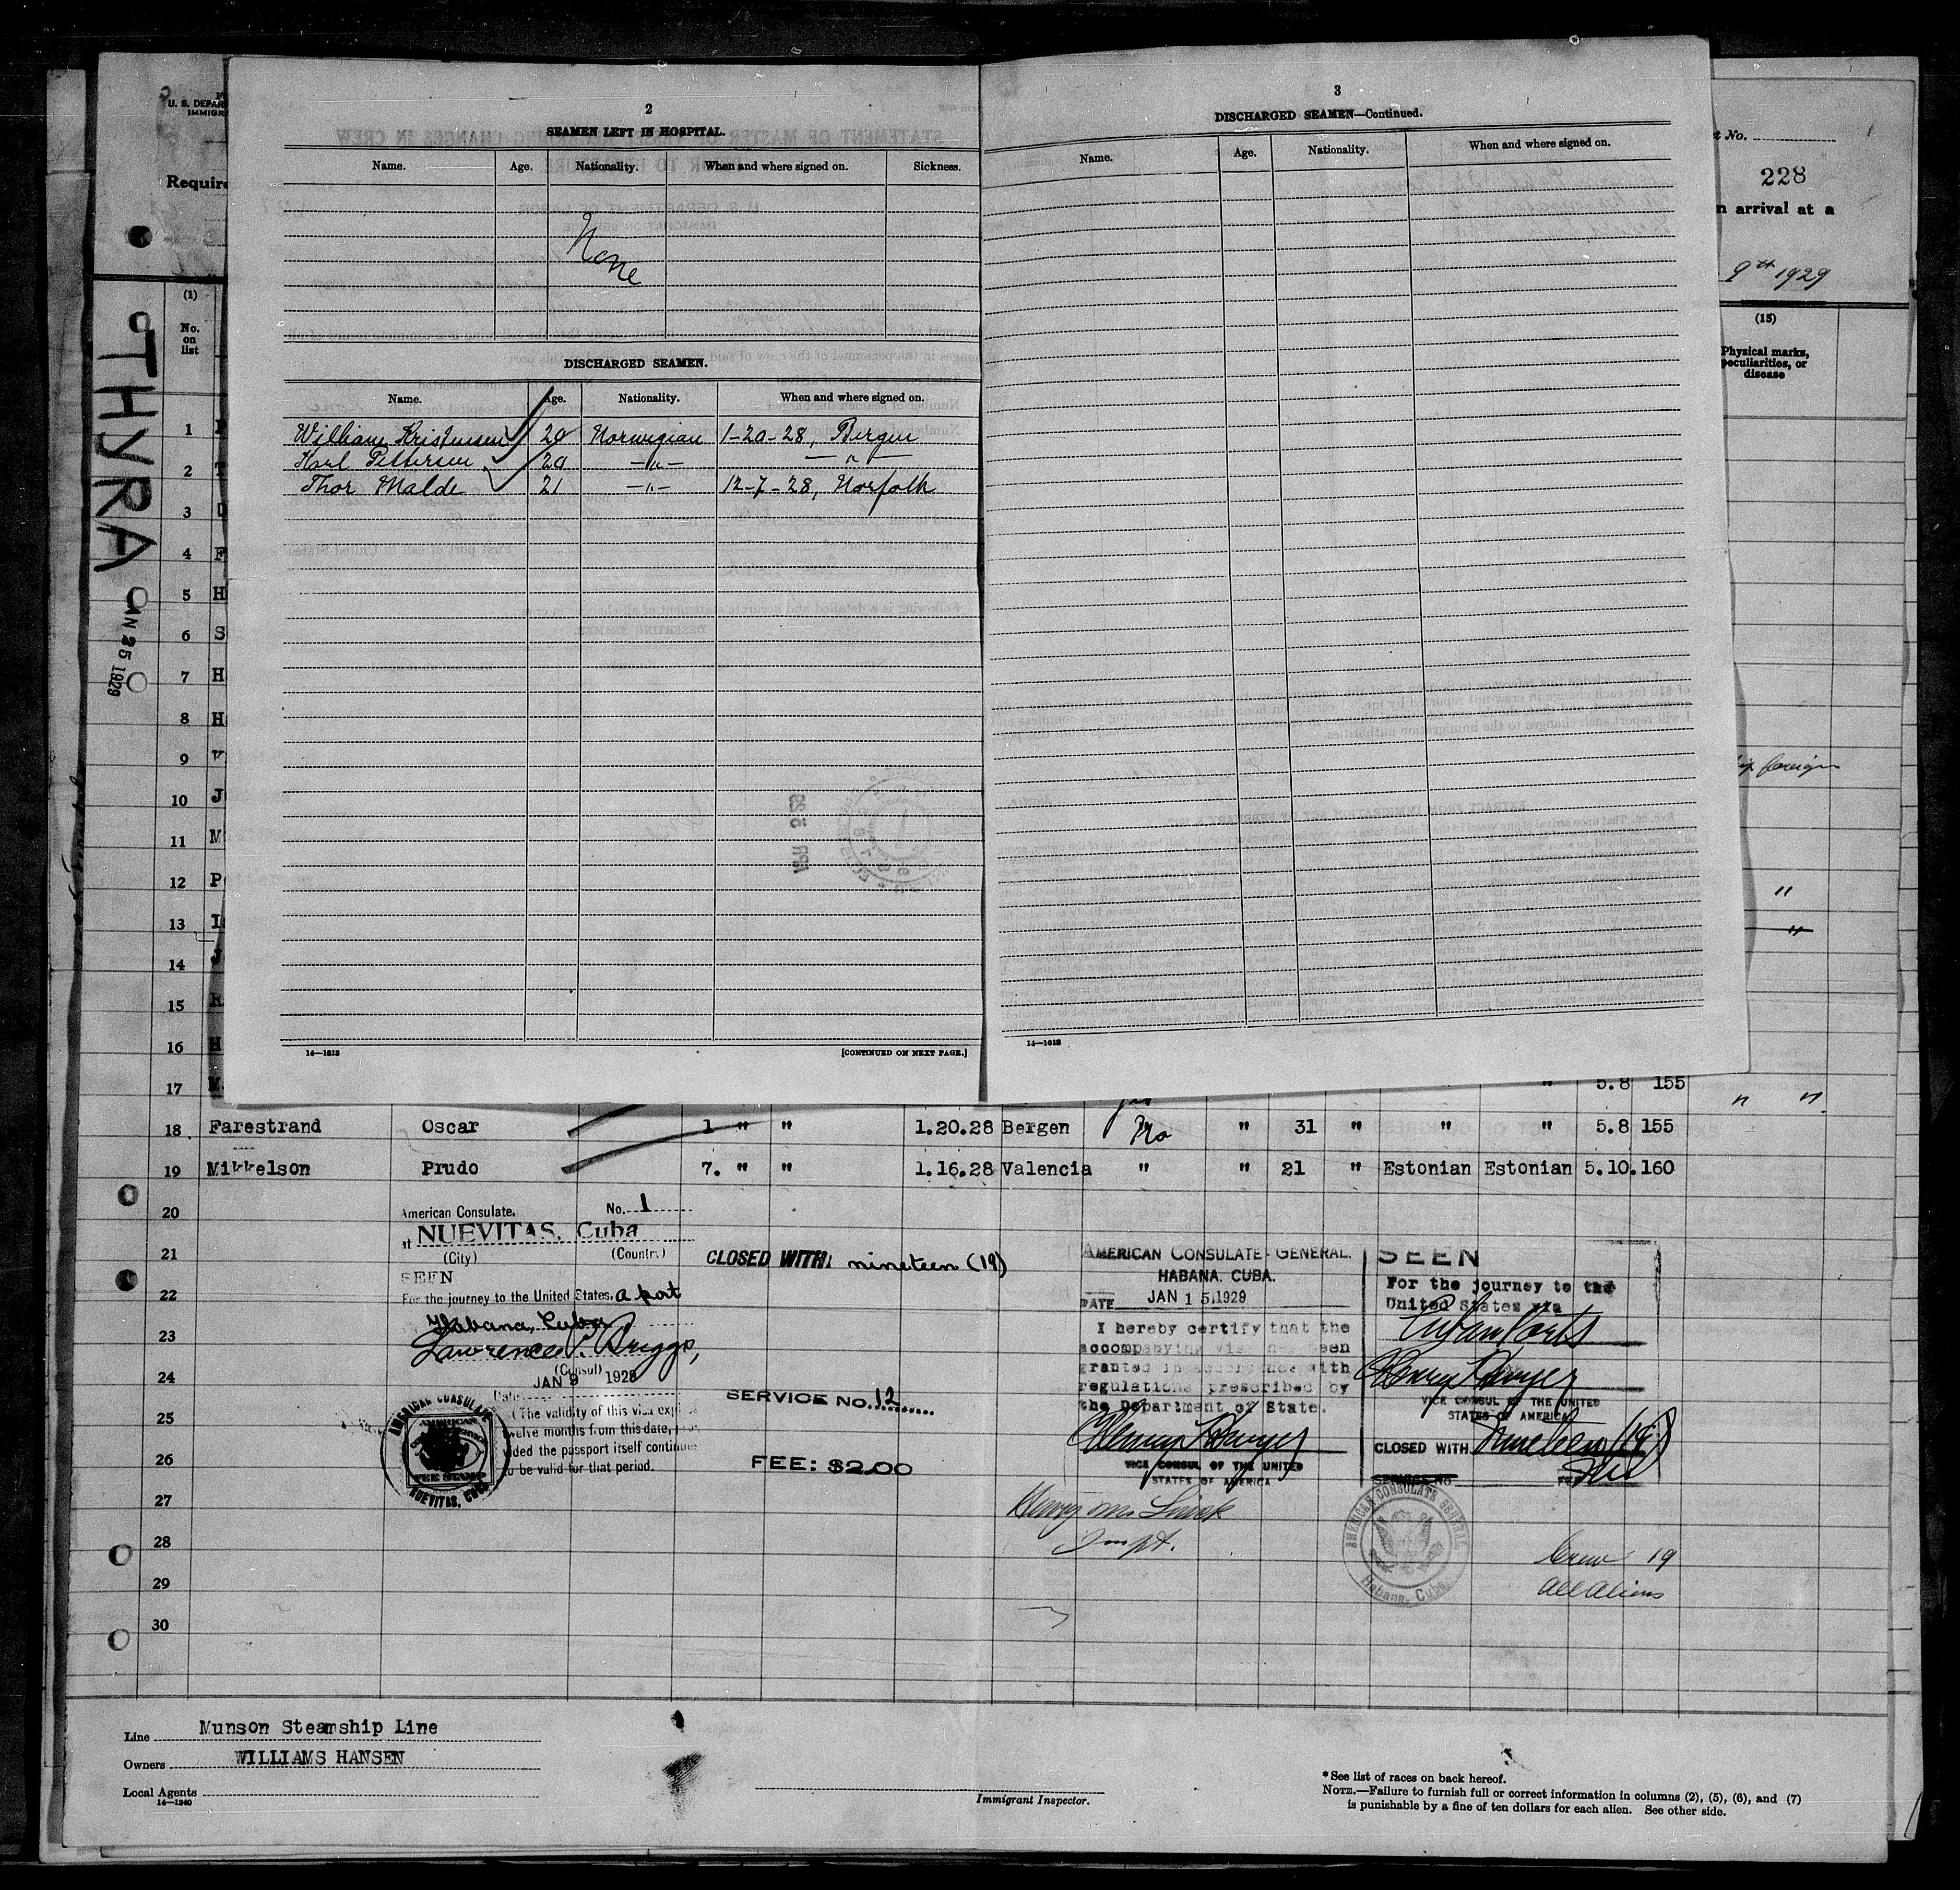 2
SEAMEN LEFT IN HOSPITAL.
Name. Age. Nationality. When and where signed on. Sickness.
None
DISCHARGED SEAMEN.
Name. Age. Nationality. When and where signed on.
William Kristensen 20 Norwegian 1-20-28, Bergen
Karl Pettersen 20 -"- -"-
Thor Malde 21 -"- 12-7-28, Norfolk
14—1613
[CONTINUED ON NEXT PAGE.]
3
DISCHARGED SEAMEN—Continued.
Name. Age. Nationality. When and where signed on.
14—1613
U. S. DEPAR
IMMIGR
Require
t No.
228
n arrival at a
9th 1929
THYRA
JAN 25 1929
(1)
No. on list
(15)
Physical marks, peculiarities, or disease
1
2 T
3 D
4 F
5 H
6 S
7 H
8 H
9
10 J
11 M
12 P "
13 "
14 J
15 R
16 H
17 M " 5.8 155 " "
18 Farestrand Oscar 1 " " 1.20.28 Bergen No " 31 " " " 5.8 155
19 Mikkelson Prudo 7. " " 1.16.28 Valencia " " 21 " Estonian Estonian 5.10. 160
20
21
22
23
24
25
26
27
28
29
30
American Consulate. No. 1
at NUEVITAS, Cuba
(City) (Country)
SEEN
For the journey to the United States, a port
Habana, Cuba
Lawrence P. Briggs,
(Consul)
JAN 9 1929
Date
(The validity of this visa
twelve months from this date,
the passport itself continues
to be valid for that period.
AMERICAN CONSULATE
NUEVITAS, CUBA
AMERICAN
FEE STAMP
CLOSED WITH: nineteen (19)
SERVICE No. 12
FEE: $2.00
AMERICAN CONSULATE-GENERAL.
HABANA. CUBA.
DATE JAN 15 1929
I hereby certify that the
accompanying visa has been
granted in accordance with
regulations prescribed by
the Department of State.
VICE CONSUL OF THE UNITED
STATES OF AMERICA
SEEN
For the journey to the
United States via
Cuban Ports
VICE CONSUL OF THE UNITED
STATES OF AMERICA
CLOSED WITH Nineteen (19)
SERVICE NO.
AMERICAN CONSULATE GENERAL
Habana, Cuba
Inspt.
Crew 19
All Aliens
Line Munson Steamship Line
Owners WILLIAMS HANSEN
Local Agents
14—1240
Immigrant Inspector.
*See list of races on back hereof.
NOTE.—Failure to furnish full or correct information in columns (2), (5), (6), and (7)
is punishable by a fine of ten dollars for each alien. See other side.